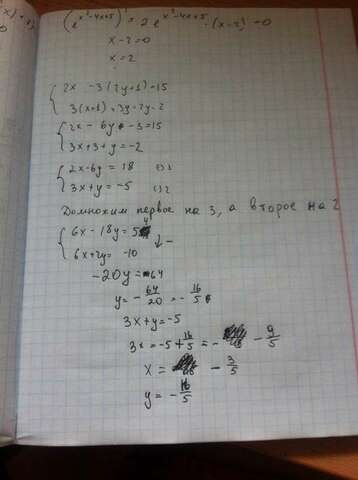 (e^{x²-4x+5})' = 2e^{x²-4x+5} · (x-2) = 0
x-2=0
x=2
{ 2x - 3(2y+1) = 15
3(x+1) + 3y = 2y-2
{ 2x - 6y - 3 = 15
3x+3+y = -2
{ 2x-6y = 18 | · 3
3x+y = -5 | · 2
Домножим первое на 3, а второе на 2
{ 6x - 18y = 54
6x+2y = -10
↓ -
-20y = 64
y = - 64/20 = - 16/5
3x+y = -5
3x = -5 + 16/5 = - 9/5
x = - 3/5
y = - 16/5